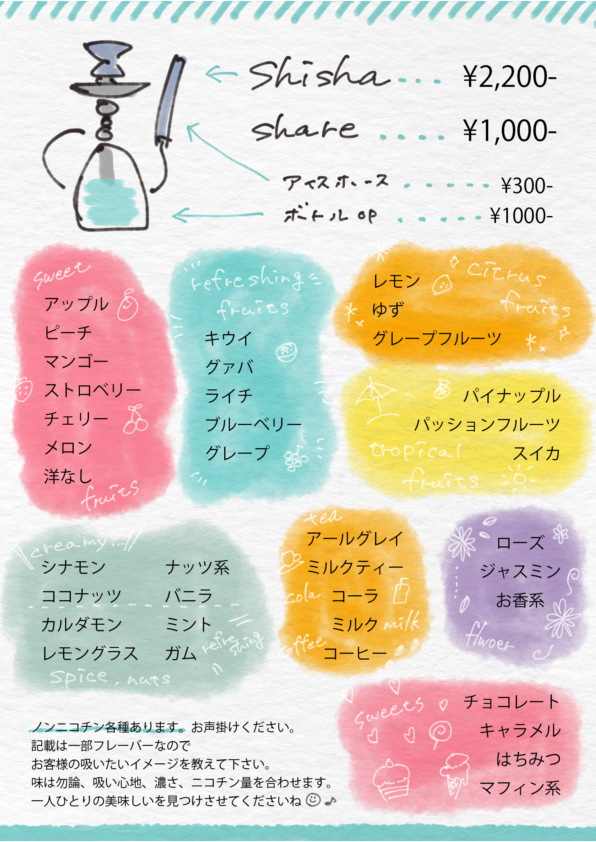 Shisha .... ¥2,200-
share .... ¥1,000-
アイスホース ...... ¥300-
ボトル op ...... ¥1000-
sweet
アップル
ピーチ
マンゴー
ストロベリー
チェリー
メロン
洋なし
fruits
refreshing
fruits
キウイ
グァバ
ライチ
ブルーベリー
グレープ
citrus
fruits
レモン
ゆず
グレープフルーツ
パイナップル
パッションフルーツ
スイカ
tropical
fruits
creamy...
シナモン ナッツ系
ココナッツ バニラ
カルダモン ミント
レモングラス ガム
refreshing
spice, nuts
tea
アールグレイ
ミルクティー
cola コーラ
ミルク milk
coffee コーヒー
ローズ
ジャスミン
お香系
flwoer
sweets
チョコレート
キャラメル
はちみつ
マフィン系
ノンニコチン各種あります。お声掛けください。
記載は一部フレーバーなので
お客様の吸いたいイメージを教えて下さい。
味は勿論、吸い心地、濃さ、ニコチン量を合わせます。
一人ひとりの美味しいを見つけさせてくださいね